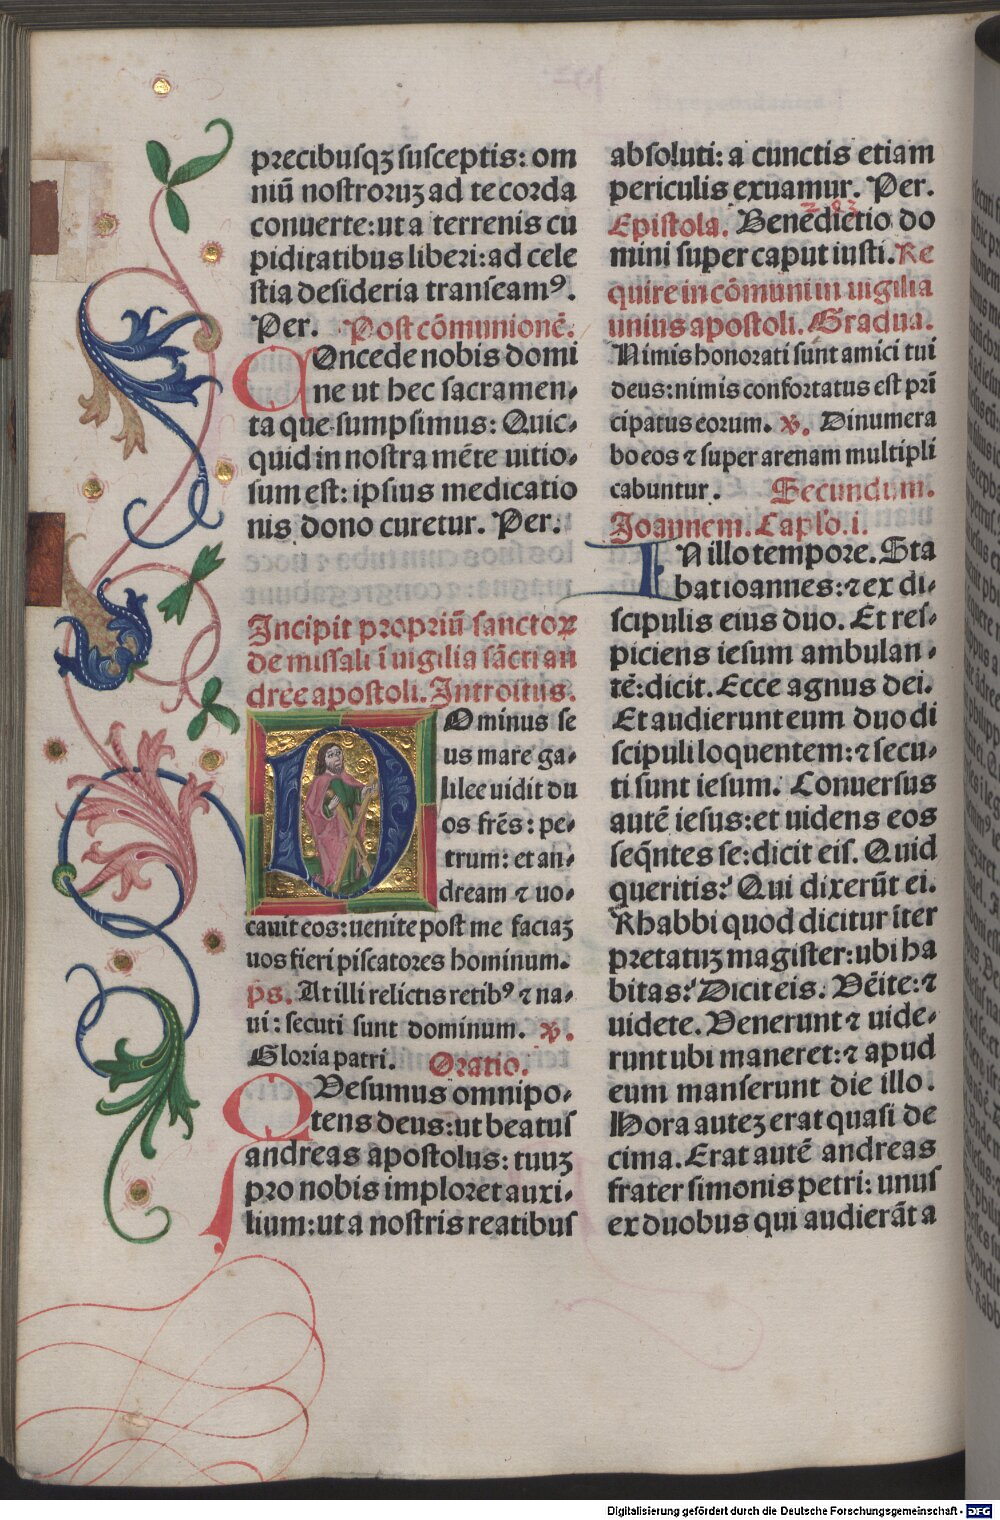 precibusqꝫ susceptis: om
niū nostroruꝫ ad te corda
conuerte: ut a terrenis cu
piditatibus liberi: ad cele
stia desideria transeamꝰ.
Per. Post cōmunionē.
COncede nobis domi
ne ut hec sacramen-
ta que sumpsimus: Quic-
quid in nostra mēte uitio-
sum est: ipsius medicatio
nis dono curetur. Per.
Incipit propriū sanctoꝝ
de missali ī uigilia sācti an
dree apostoli. Introitus.
DOminus se
us mare ga-
lilee uidit du
os frēs: pe-
trum: et an-
dream ⁊ uo-
cauit eos: uenite post me faciaꝫ
uos fieri piscatores hominum.
ps. At illi relictis retibꝰ ⁊ na-
ui: secuti sunt dominum. ꝟ.
Gloria patri. Oratio.
QVesumus omnipo-
tens deus: ut beatus
andreas apostolus: tuuꝫ
pro nobis imploret auxi-
lium: ut a nostris reatibus
absoluti: a cunctis etiam
periculis exuamur. Per.
Epistola. Benedictio do
mini super caput iusti. Re
quire in cōmuni in uigilia
unius apostoli. Gradua.
Nimis honorati sunt amici tui
deus: nimis confortatus est prī
cipatus eorum. ꝟ. Dinumera
bo eos ⁊ super arenam multipli
cabuntur. Secundum.
Joannem. Caplo. i.
IN illo tempore. Sta
bat ioannes: ⁊ ex di-
scipulis eius duo. Et res-
piciens iesum ambulan-
tē: dicit. Ecce agnus dei.
Et audierunt eum duo di
scipuli loquentem: ⁊ secu-
ti sunt iesum. Conuersus
autē iesus: et uidens eos
seq̄ntes se: dicit eis. Quid
queritis? Qui dixerūt ei.
Rhabbi quod dicitur īter
pretatuꝫ magister: ubi ha
bitas? Dicit eis. Vēite: ⁊
uidete. Venerunt ⁊ uide-
runt ubi maneret: ⁊ apud
eum manserunt die illo.
Hora auteꝫ erat quasi de
cima. Erat autē andreas
frater simonis petri: unus
ex duobus qui audierāt a
Digitalisierung gefördert durch die Deutsche Forschungsgemeinschaft - DFG